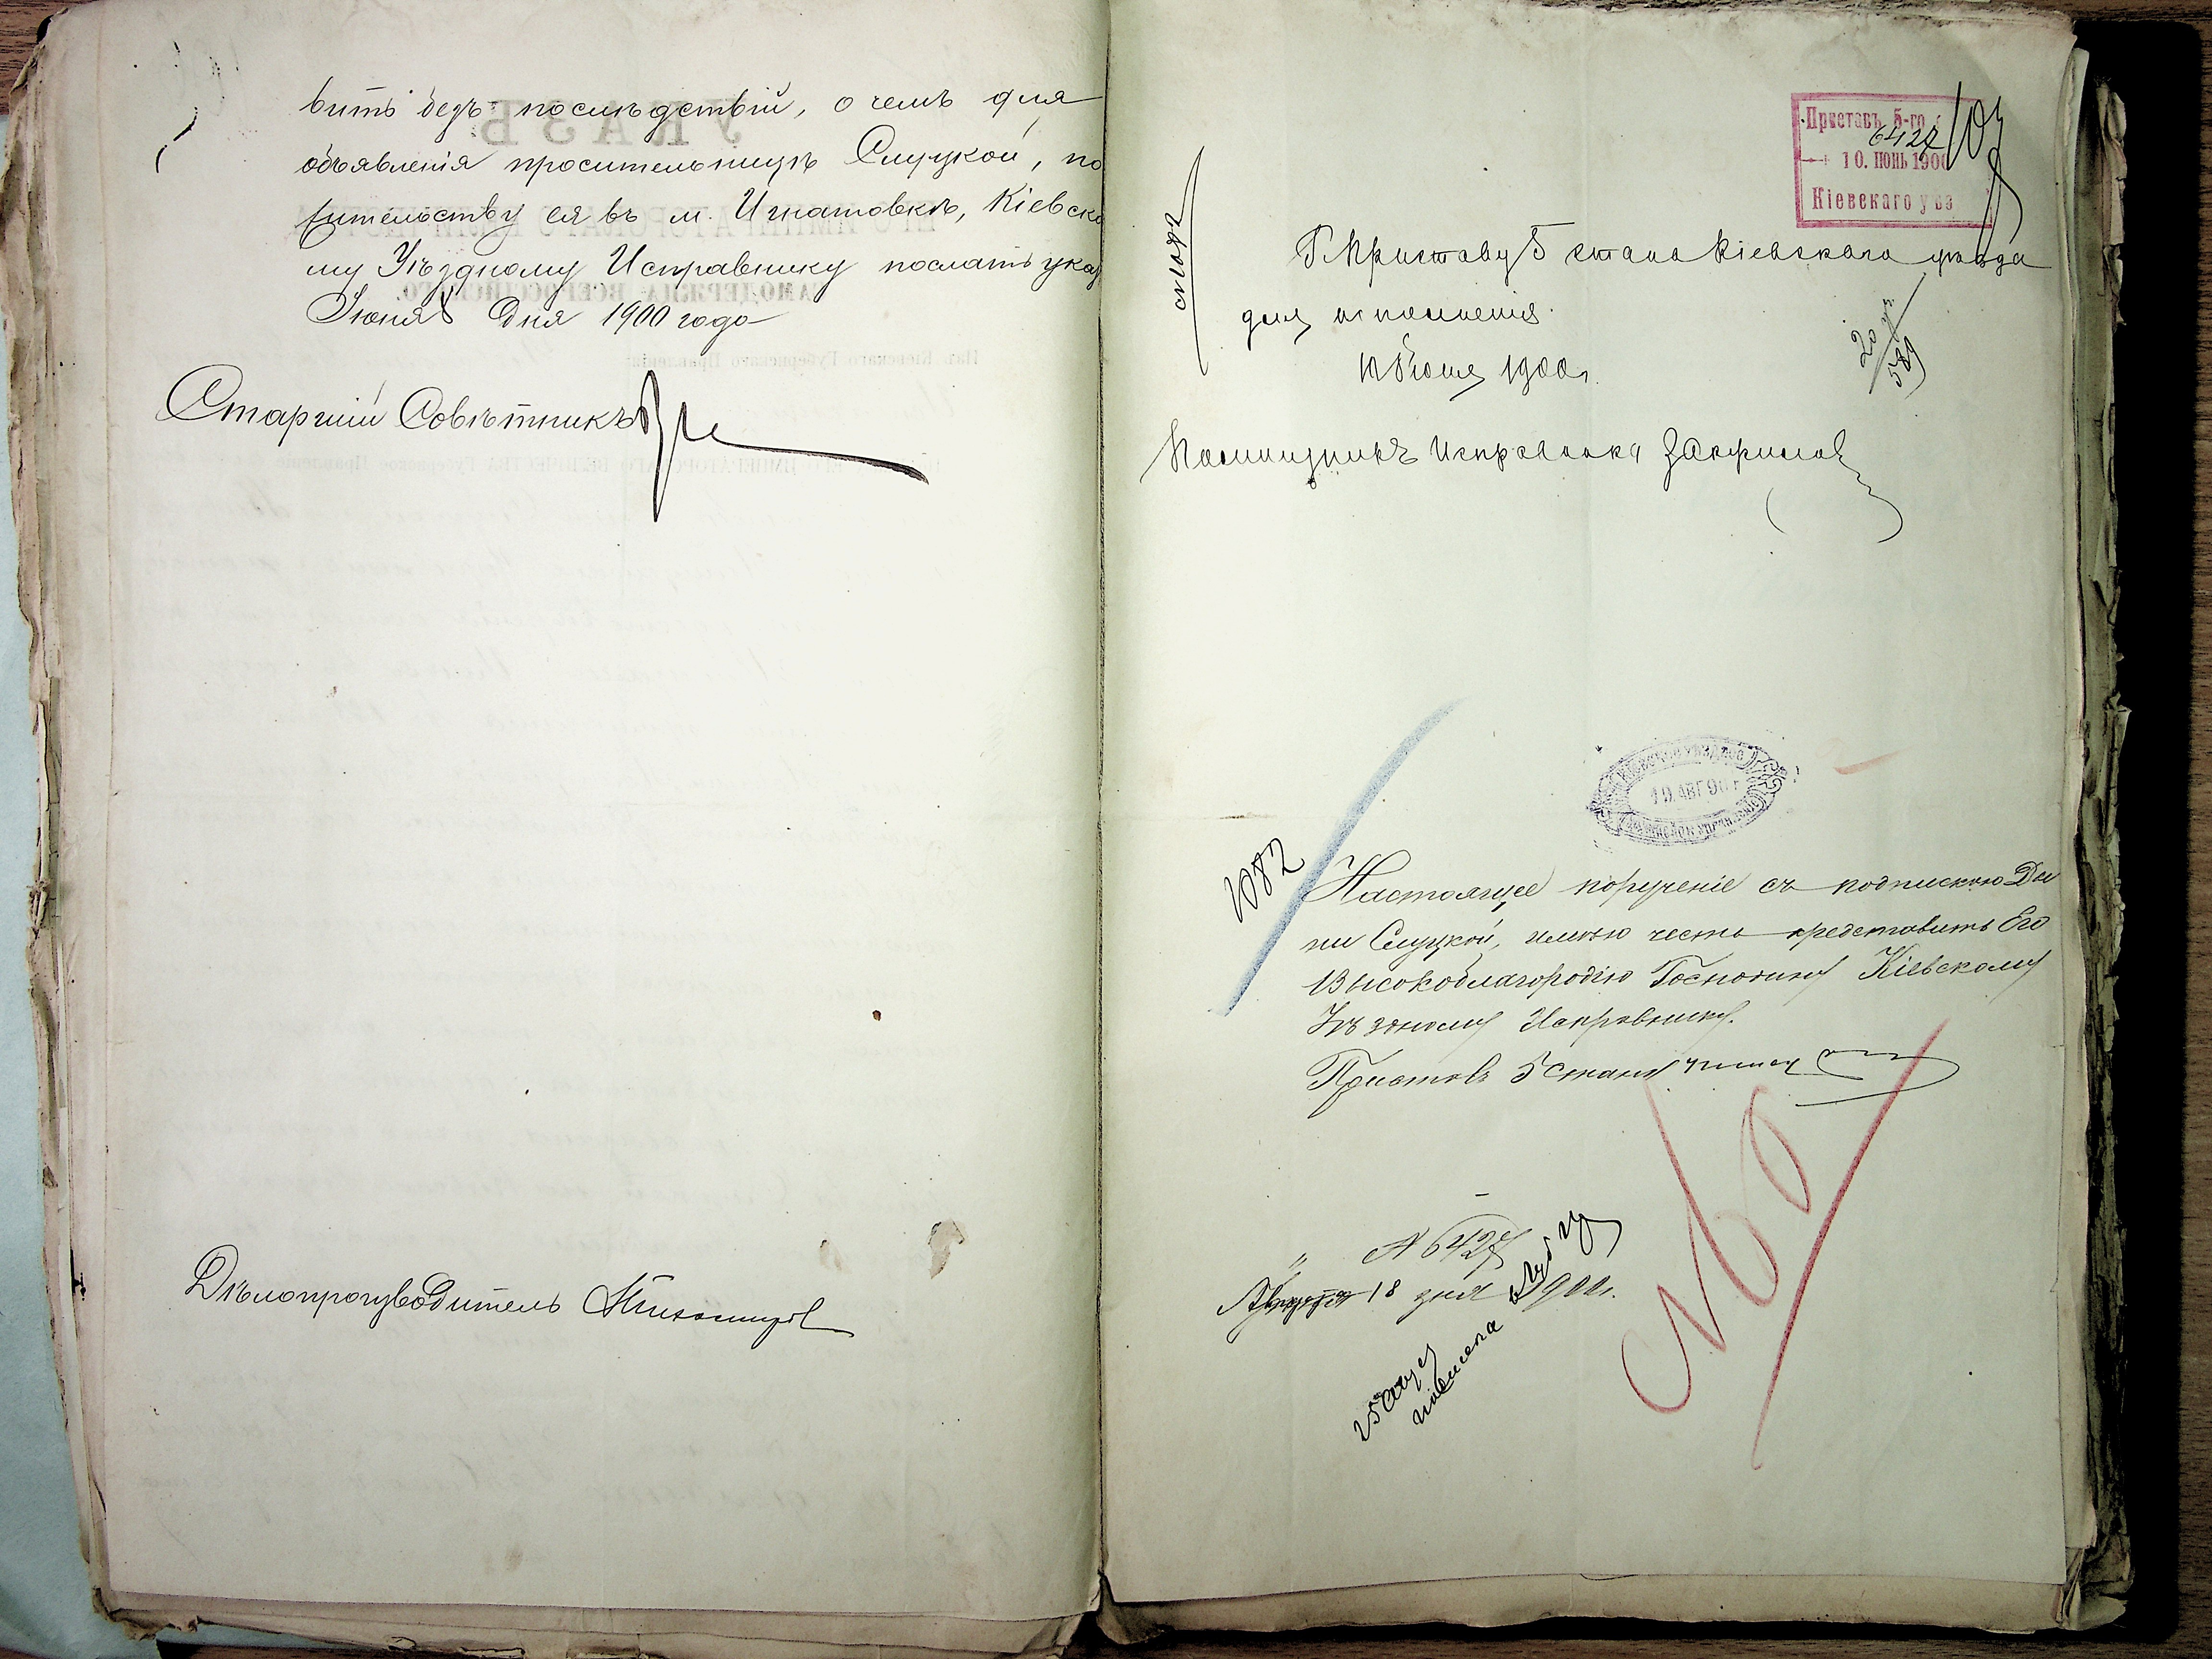 вить безъ послѣдствій, о чемъ для
объявленія просительницѣ Слуцкой, по
жительству ея въ м. Игнатовкѣ, Кіевско
му Уѣздному Исправнику послать указ
Іюня 8 дня 1900 года
Старшій Совѣтникъ
Дѣлопроизводитель
Приставъ 5-го
6427
10. ІЮНЬ 1900
Кіевскаго уѣз
Г. Приставу 5 стана Кіевскаго уѣзда
для исполненія.
10 Іюня 1900 г.
20
589
Помощникъ Исправника
10. АВГ 90
1082
Настоящее порученіе съ подпискою Ды
ни Слуцкой, имѣю честь представить Его
Высокоблагородію Господину Кіевскому
Уѣздному Исправнику.
Приставъ 5 стана
№ 6427
Августа 18 дня 1900 г.